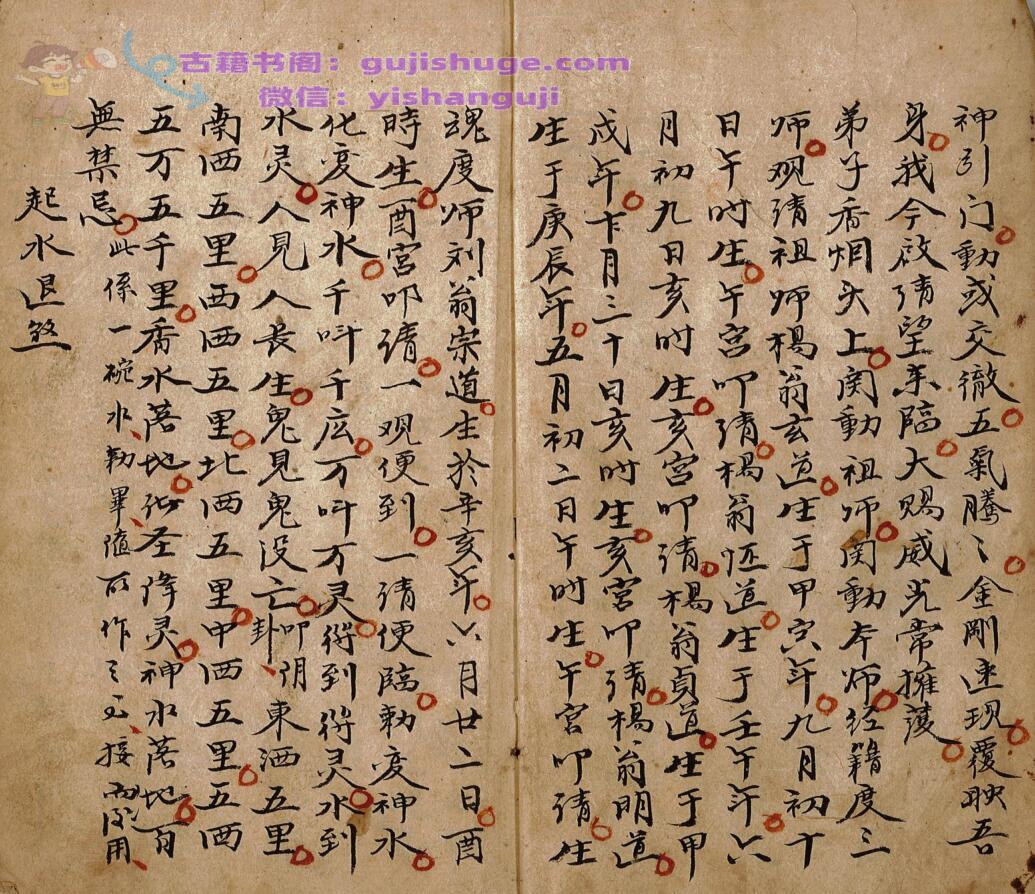 古籍书阁：gujishuge.com
微信：yishanguji
神引门動或交徹五氣騰〻金剛速现覆映吾
身我今啟请望来臨大赐威光常擁護
弟子香烟头上関動祖师関動本师经籍度三
师观请祖师楊翁玄道生于甲寅年九月初十
日午时生午宫叩请楊翁恆道生于壬午年六
月初九日亥时生亥宫叩请楊翁貞道生于甲
戌年十月三十日亥时生亥宫叩请楊翁明道
生于庚辰年五月初二日午时生午宫叩请生
魂度师刘翁宗道生於辛亥年六月廿二日酉
時生酉宫叩请一观便到一请便臨勅变神水
化变神水千叫千应万叫万灵得到得灵水到
水灵人見人长生鬼見鬼没亡叩阴卦東洒五里
南洒五里西洒五里北洒五里中洒五里五洒
五万五千里香水落地诸圣降灵神水落地百
無禁忌此係一碗水勅畢随所作之 接 用
起水退煞